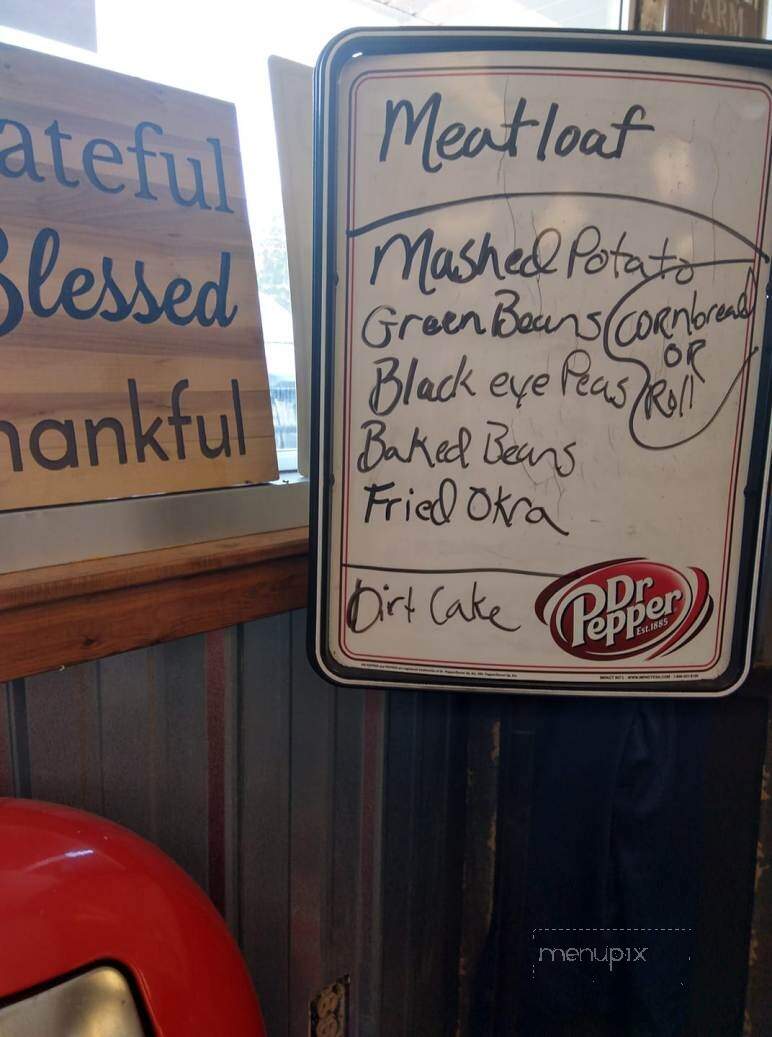 FARM
ateful
Blessed
hankful
Meatloaf
Mashed Potato
Green Beans
Black eye Peas
Baked Beans
Fried Okra
Cornbread
OR
Roll
Dirt Cake
Dr
Pepper
Est.1885
menupix